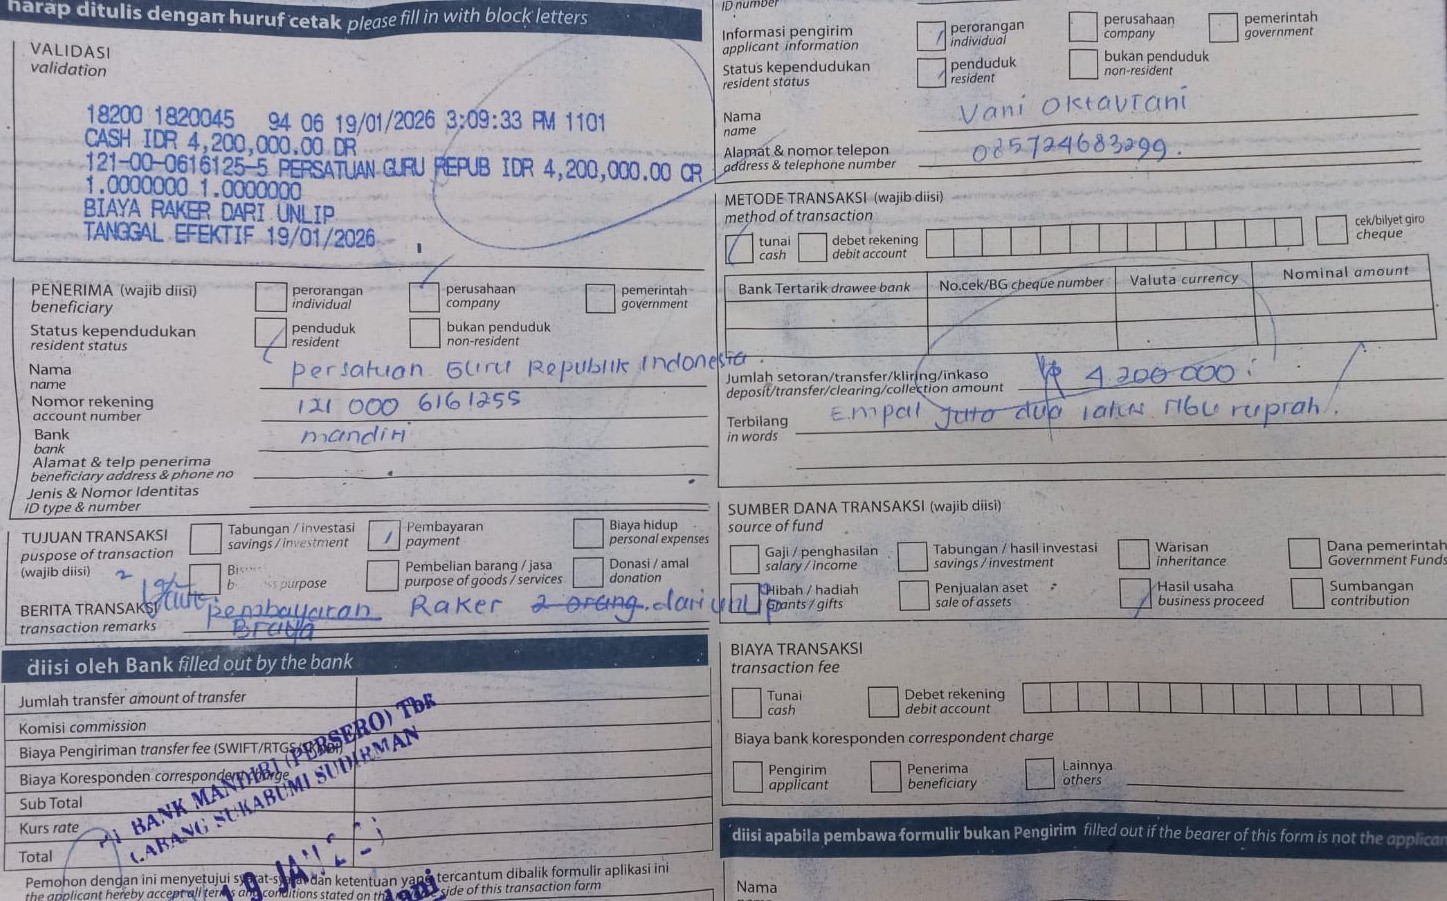 harap ditulis dengan huruf cetak please fill in with block letters
VALIDASI
validation
18200 1820045 94 06 19/01/2026 3:09:33 PM 1101
CASH IDR 4,200,000.00 DR
121-00-0616125-5 PERSATUAN GURU REPUB IDR 4,200,000.00 CR
1.0000000 1.0000000
BIAYA RAKER DARI UNLIP
TANGGAL EFEKTIF 19/01/2026
PENERIMA (wajib diisi)
beneficiary
perorangan
individual
perusahaan
company
pemerintah
government
Status kependudukan
resident status
penduduk
resident
bukan penduduk
non-resident
Nama
name
Persatuan Guru Republik Indonesia.
Nomor rekening
account number
121 000 6161255
Bank
bank
mandiri
Alamat & telp penerima
beneficiary address & phone no
Jenis & Nomor Identitas
ID type & number
TUJUAN TRANSAKSI
puspose of transaction
(wajib diisi)
Tabungan / investasi
savings / investment
Pembayaran
payment
Biaya hidup
personal expenses
purpose
Pembelian barang / jasa
purpose of goods / services
Donasi / amal
donation
BERITA TRANSAKSI
transaction remarks
pembayaran Raker 2 orang. dari unlip
Biaya
diisi oleh Bank filled out by the bank
Jumlah transfer amount of transfer
Komisi commission
Biaya Pengiriman transfer fee (SWIFT/RTGS/
Biaya Koresponden correspondent charge
Sub Total
Kurs rate
Total
BANK MANDIRI (PERSERO) Tbk
CABANG SUKABUMI SUDIRMAN
19 JAN
Pemohon dengan ini menyetujui syarat-syarat dan ketentuan yang tercantum dibalik formulir aplikasi ini
the applicant hereby accept all terms and conditions stated on the side of this transaction form
ID number
Informasi pengirim
applicant information
perorangan
individual
perusahaan
company
pemerintah
government
Status kependudukan
resident status
penduduk
resident
bukan penduduk
non-resident
Nama
name
Vani Oktaviani
Alamat & nomor telepon
address & telephone number
085724683299.
METODE TRANSAKSI (wajib diisi)
method of transaction
tunai
cash
debet rekening
debit account
cek/bilyet giro
cheque
Bank Tertarik drawee bank
No.cek/BG cheque number
Valuta currency
Nominal amount
Jumlah setoran/transfer/kliring/inkaso
deposit/transfer/clearing/collection amount
Rp 4.200.000
Terbilang
in words
Empat juta dua ratus ribu rupiah.
SUMBER DANA TRANSAKSI (wajib diisi)
source of fund
Gaji / penghasilan
salary / income
Tabungan / hasil investasi
savings / investment
Warisan
inheritance
Dana pemerintah
Government Funds
Hibah / hadiah
grants / gifts
Penjualan aset
sale of assets
Hasil usaha
business proceed
Sumbangan
contribution
BIAYA TRANSAKSI
transaction fee
Tunai
cash
Debet rekening
debit account
Biaya bank koresponden correspondent charge
Pengirim
applicant
Penerima
beneficiary
Lainnya
others
diisi apabila pembawa formulir bukan Pengirim filled out if the bearer of this form is not the applican
Nama